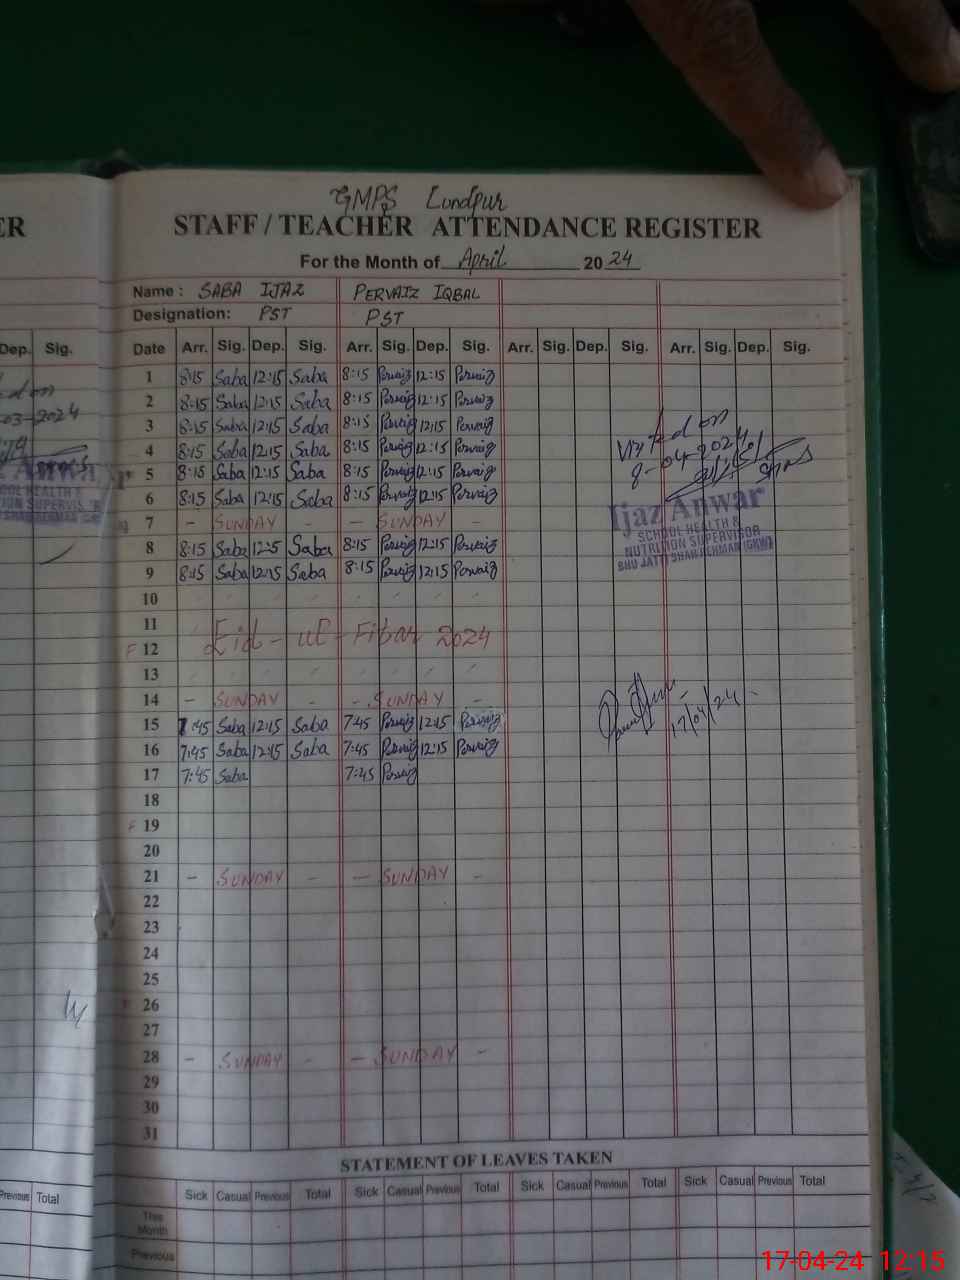 GMPS Lundpur
ER STAFF / TEACHER ATTENDANCE REGISTER
For the Month of April 2024
Name : SABA IJAZ PERVAIZ IQBAL
Designation: PST PST
Dep. Sig. Date Arr. Sig. Dep. Sig. Arr. Sig. Dep. Sig. Arr. Sig. Dep. Sig. Arr. Sig. Dep. Sig.
1 8:15 Saba 12:15 Saba 8:15 Pervaiz 12:15 Pervaiz
2 8:15 Saba 12:15 Saba 8:15 Pervaiz 12:15 Pervaiz
3 8:15 Saba 12:15 Saba 8:15 Pervaiz 12:15 Pervaiz
4 8:15 Saba 12:15 Saba 8:15 Pervaiz 12:15 Pervaiz
5 8:15 Saba 12:15 Saba 8:15 Pervaiz 12:15 Pervaiz
6 8:15 Saba 12:15 Saba 8:15 Pervaiz 12:15 Pervaiz
7 - SUNDAY - - SUNDAY -
8 8:15 Saba 12:5 Saba 8:15 Pervaiz 12:15 Pervaiz
9 8:15 Saba 12:15 Saba 8:15 Pervaiz 12:15 Pervaiz
10
11
Eid-ul-Fitar 2024
F 12
13
14 - SUNDAY - - SUNDAY -
15 7:45 Saba 12:15 Saba 7:45 Pervaiz 12:15 Pervaiz
16 7:45 Saba 12:15 Saba 7:45 Pervaiz 12:15 Pervaiz
17 7:45 Saba 7:45 Pervaiz
18
F 19
20
21 - SUNDAY - - SUNDAY -
22
23
24
25
26
27
28 - SUNDAY - - SUNDAY -
29
30
31
Visited on
8-04-2024
Ijaz Anwar
SCHOOL HEALTH &
NUTRITION SUPERVISOR
BHU JATTI SHAH REHMAN (GRW)
17/04/24
-03-2024
STATEMENT OF LEAVES TAKEN
Previous Total Sick Casual Previous Total Sick Casual Previous Total Sick Casual Previous Total Sick Casual Previous Total
This Month
Previous
17-04-24 12:15